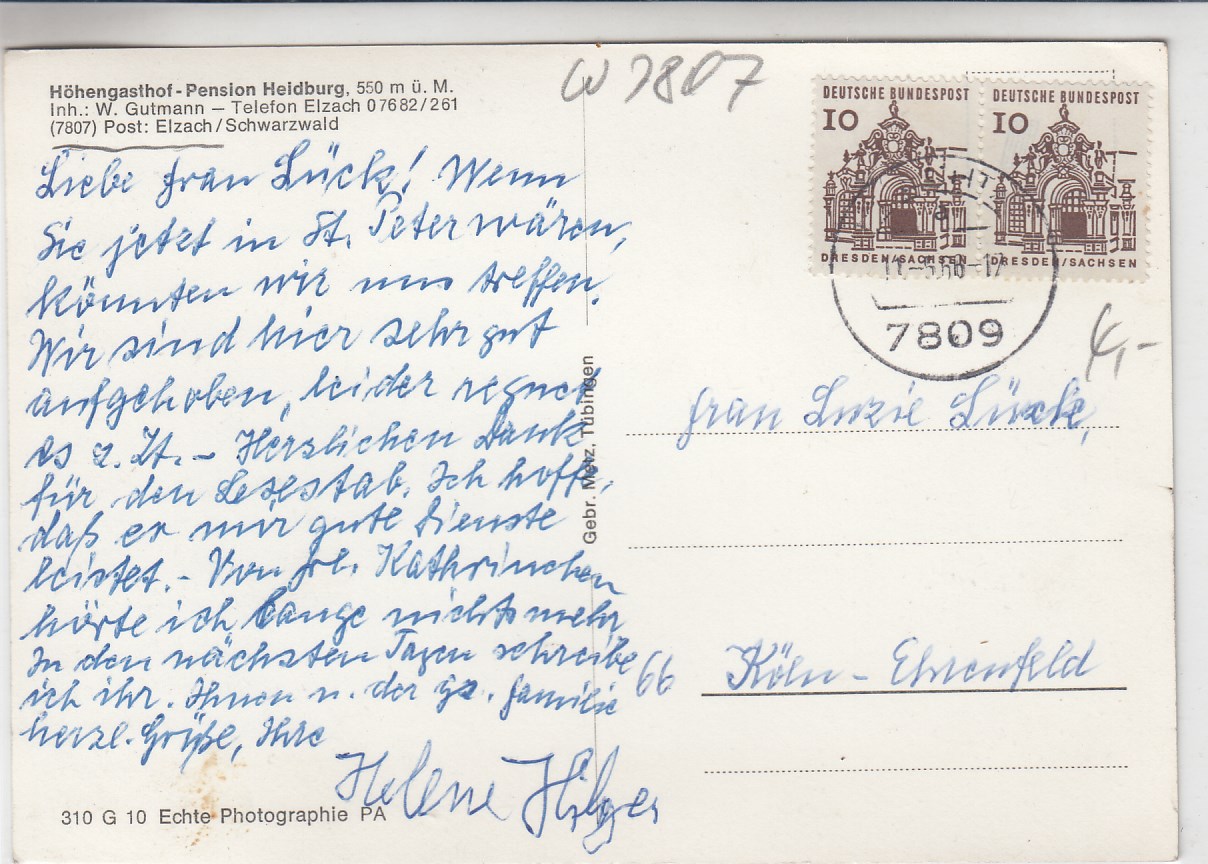 Höhengasthof-Pension Heidburg, 550 m ü. M.
Inh.: W. Gutmann — Telefon Elzach 07682/261
(7807) Post: Elzach/Schwarzwald
W 7807
Liebe Frau Lück! Wenn
Sie jetzt in St. Peter wären,
könnten wir uns treffen.
Wir sind hier sehr gut
aufgehoben, leider regnet
es z. Zt. - Herzlichen Dank
für den Lesestab. Ich hoffe,
daß er mir gute Dienste
leistet. - Von Frl. Kathrinchen
hörte ich lange nichts mehr
In den nächsten Tagen schreibe
ich ihr. Ihnen u. der gz. Familie
herzl. Grüße, Ihre
Helene Hilger
310 G 10 Echte Photographie PA
Gebr. Metz, Tübingen
DEUTSCHE BUNDESPOST
10
DRESDEN/SACHSEN
DEUTSCHE BUNDESPOST
10
DRESDEN/SACHSEN
7809
4,-
Frau Luzie Lück,
66
Köln - Ehrenfeld